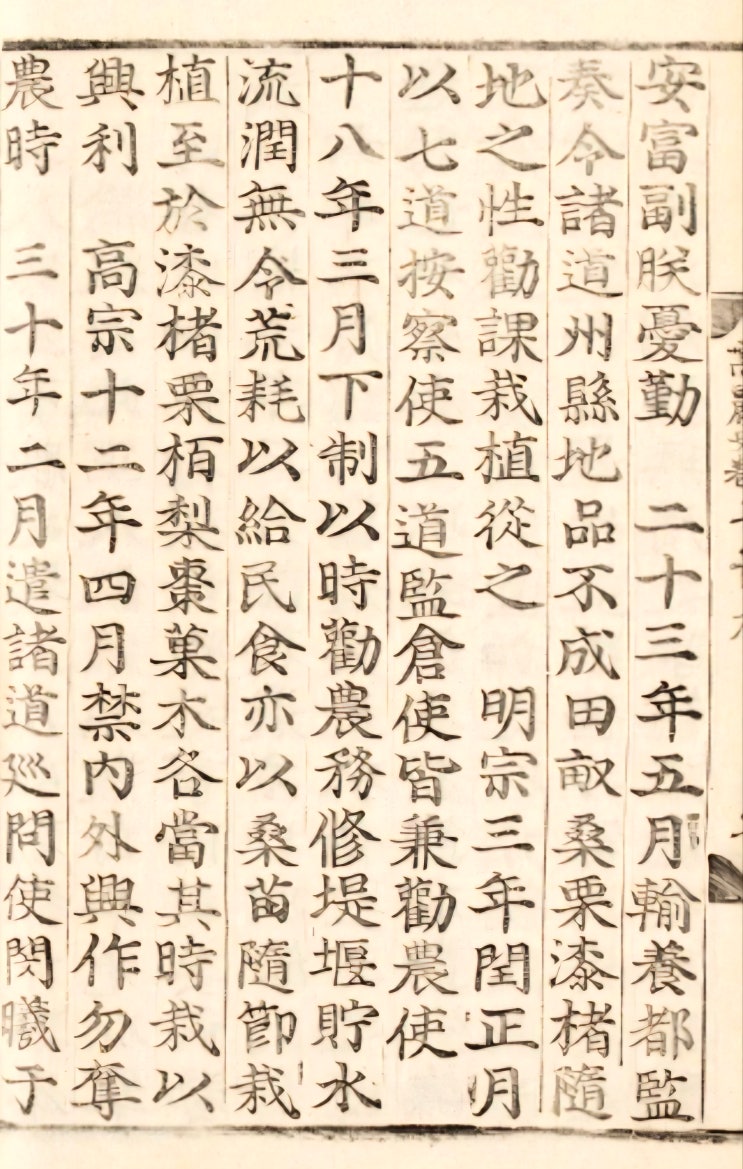 安富副朕憂勤　二十三年五月輸養都監
奏令諸道州縣地品不成田畝桑栗漆楮隨
地之性勸課栽植從之　明宗三年閏正月
以七道按察使五道監倉使皆兼勸農使
十八年三月下制以時勸農務修堤堰貯水
流潤無令荒耗以給民食亦以桑苗隨節栽
植至於漆楮栗栢梨棗菓木各當其時栽以
興利　高宗十二年四月禁內外興作勿奪
農時　三十年二月遣諸道廵問使閔曦于